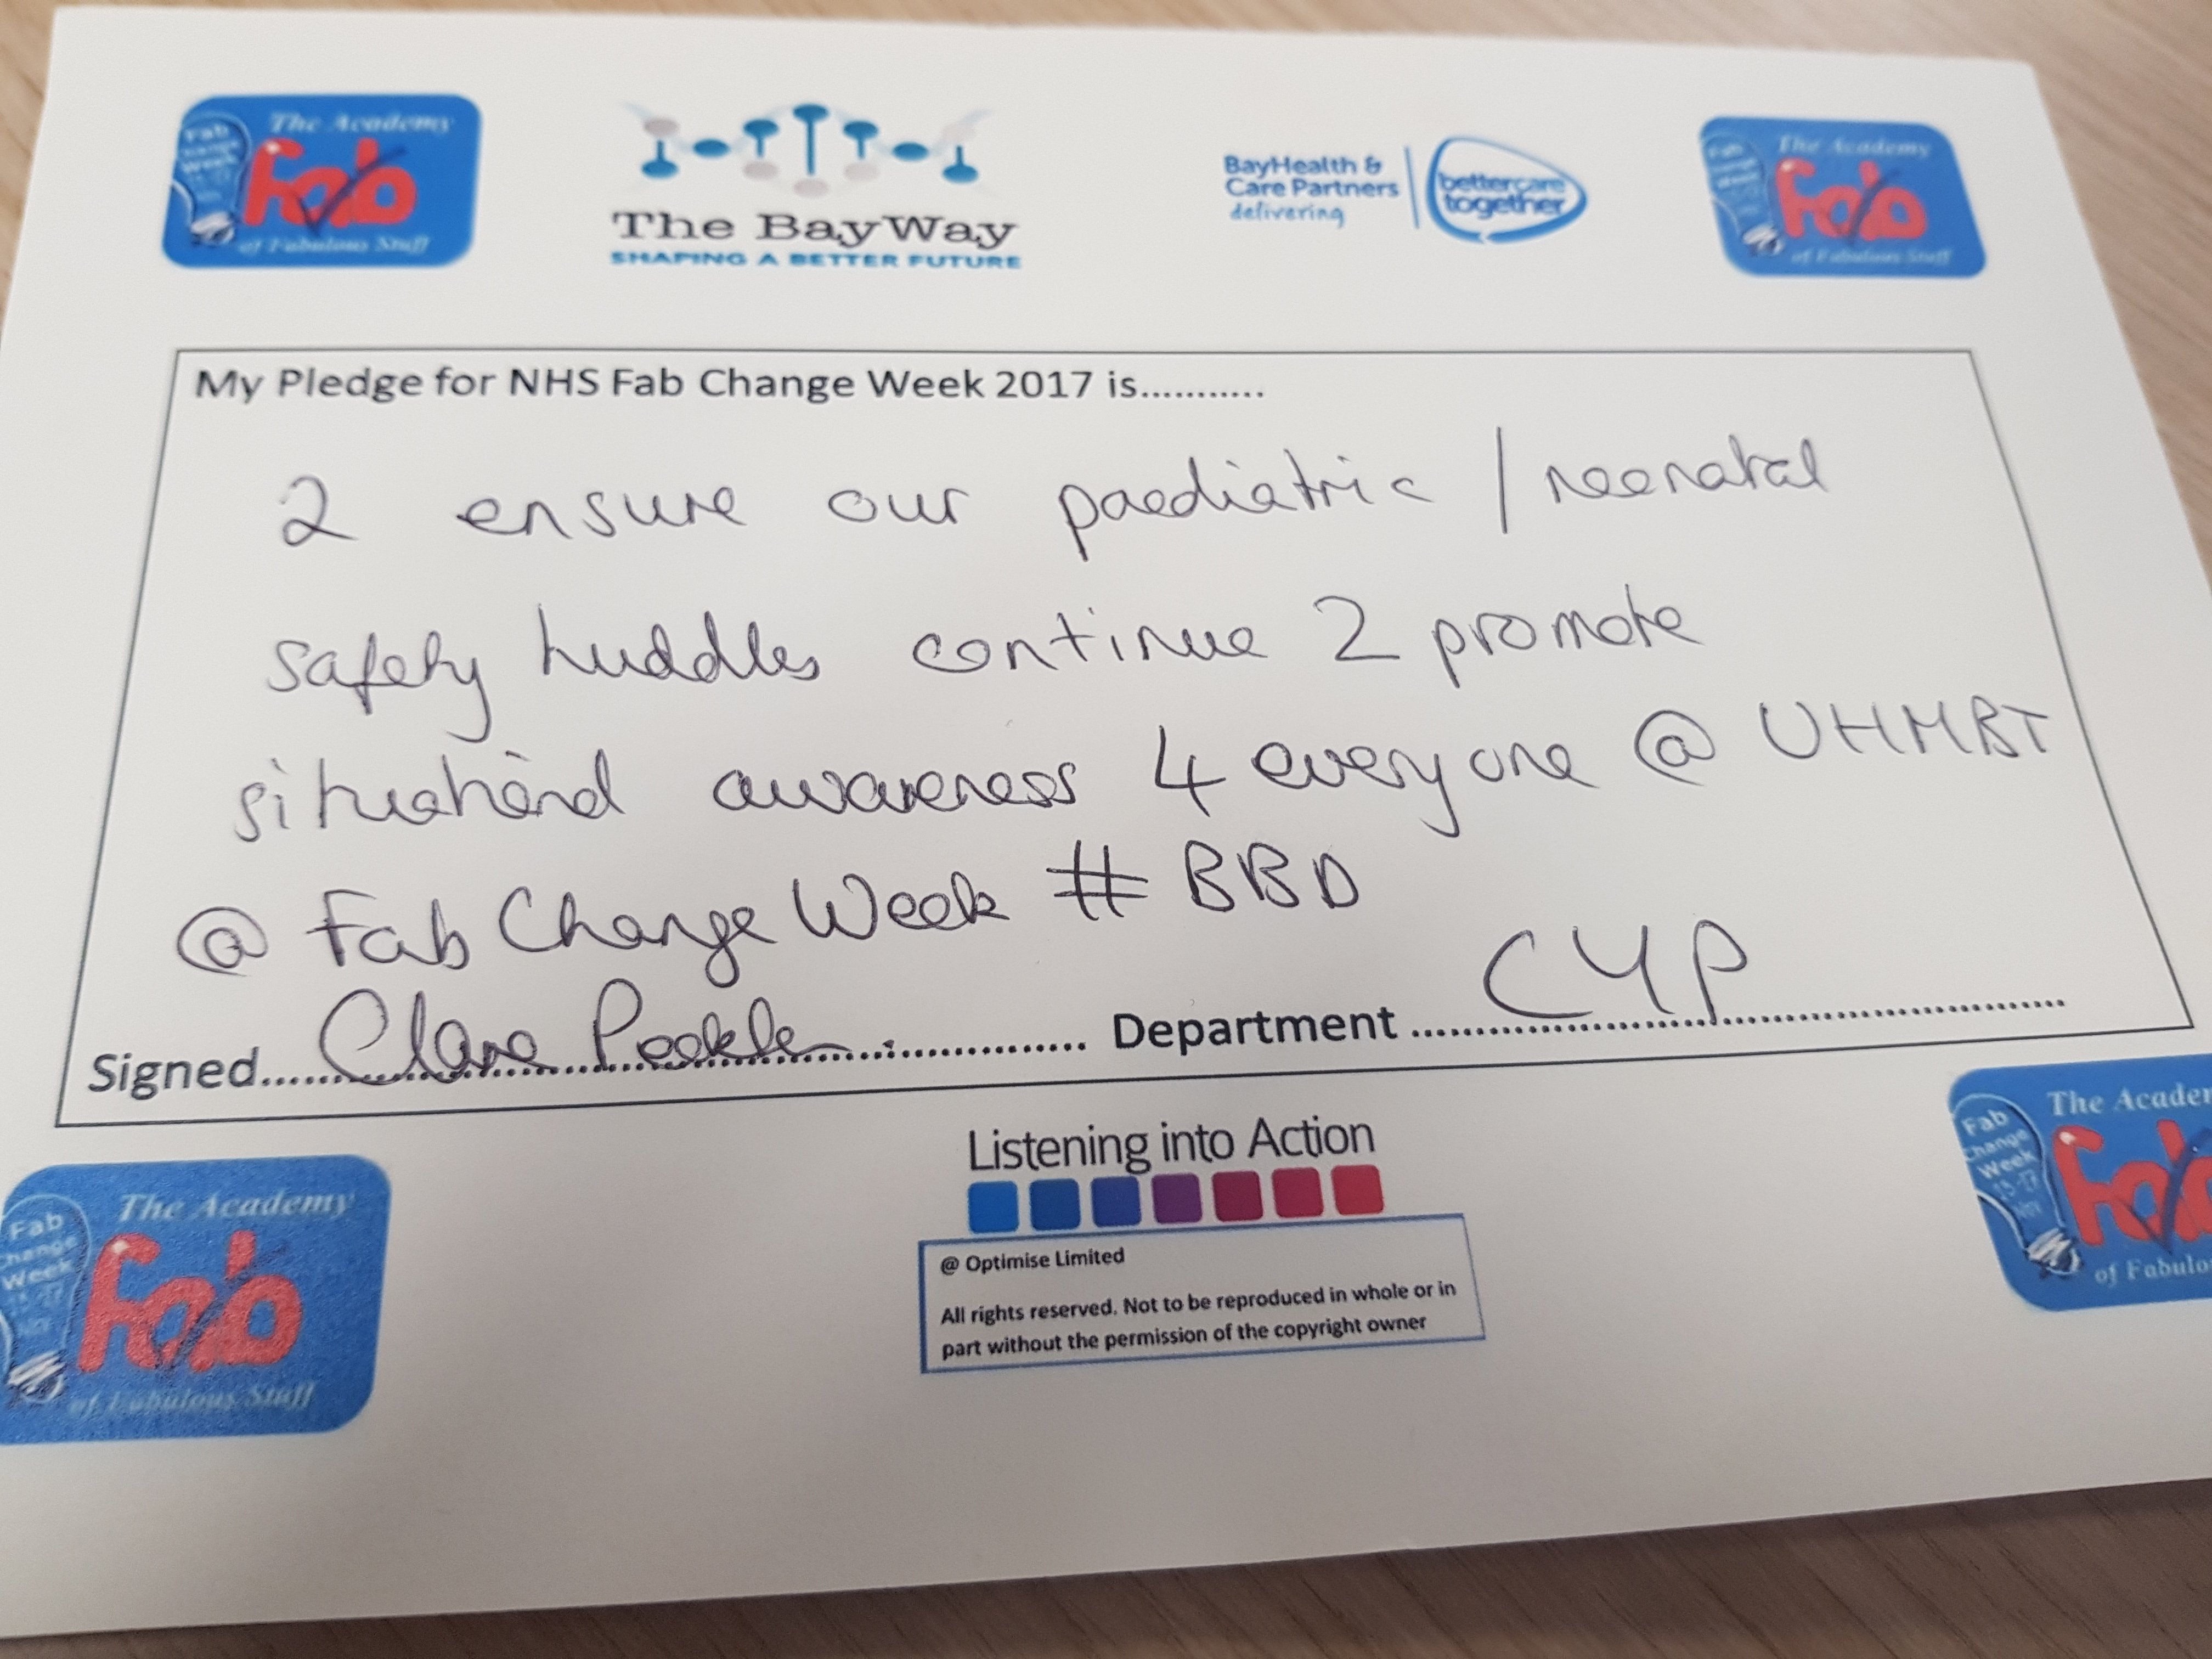 The Academy
Fab
Fab
Change
Week
of Fabulous Stuff
The BayWay
SHAPING A BETTER FUTURE
BayHealth &
Care Partners
delivering
bettercare
together
The Academy
Fab
of Fabulous Stuff
My Pledge for NHS Fab Change Week 2017 is...........
2 ensure our paediatric / neonatal
safety huddles continue 2 promote
situational awareness 4 everyone @ UHMBT
@ Fab Change Week # BBD
Signed.... Clare ........ Department ..... CYP .....
Listening into Action
@ Optimise Limited
All rights reserved. Not to be reproduced in whole or in
part without the permission of the copyright owner
Fab
Change
Week
The Academy
Fab
of Fabulous Stuff
Fab
Change
Week
13-17
Nov
The Academ
Fab
of Fabulo